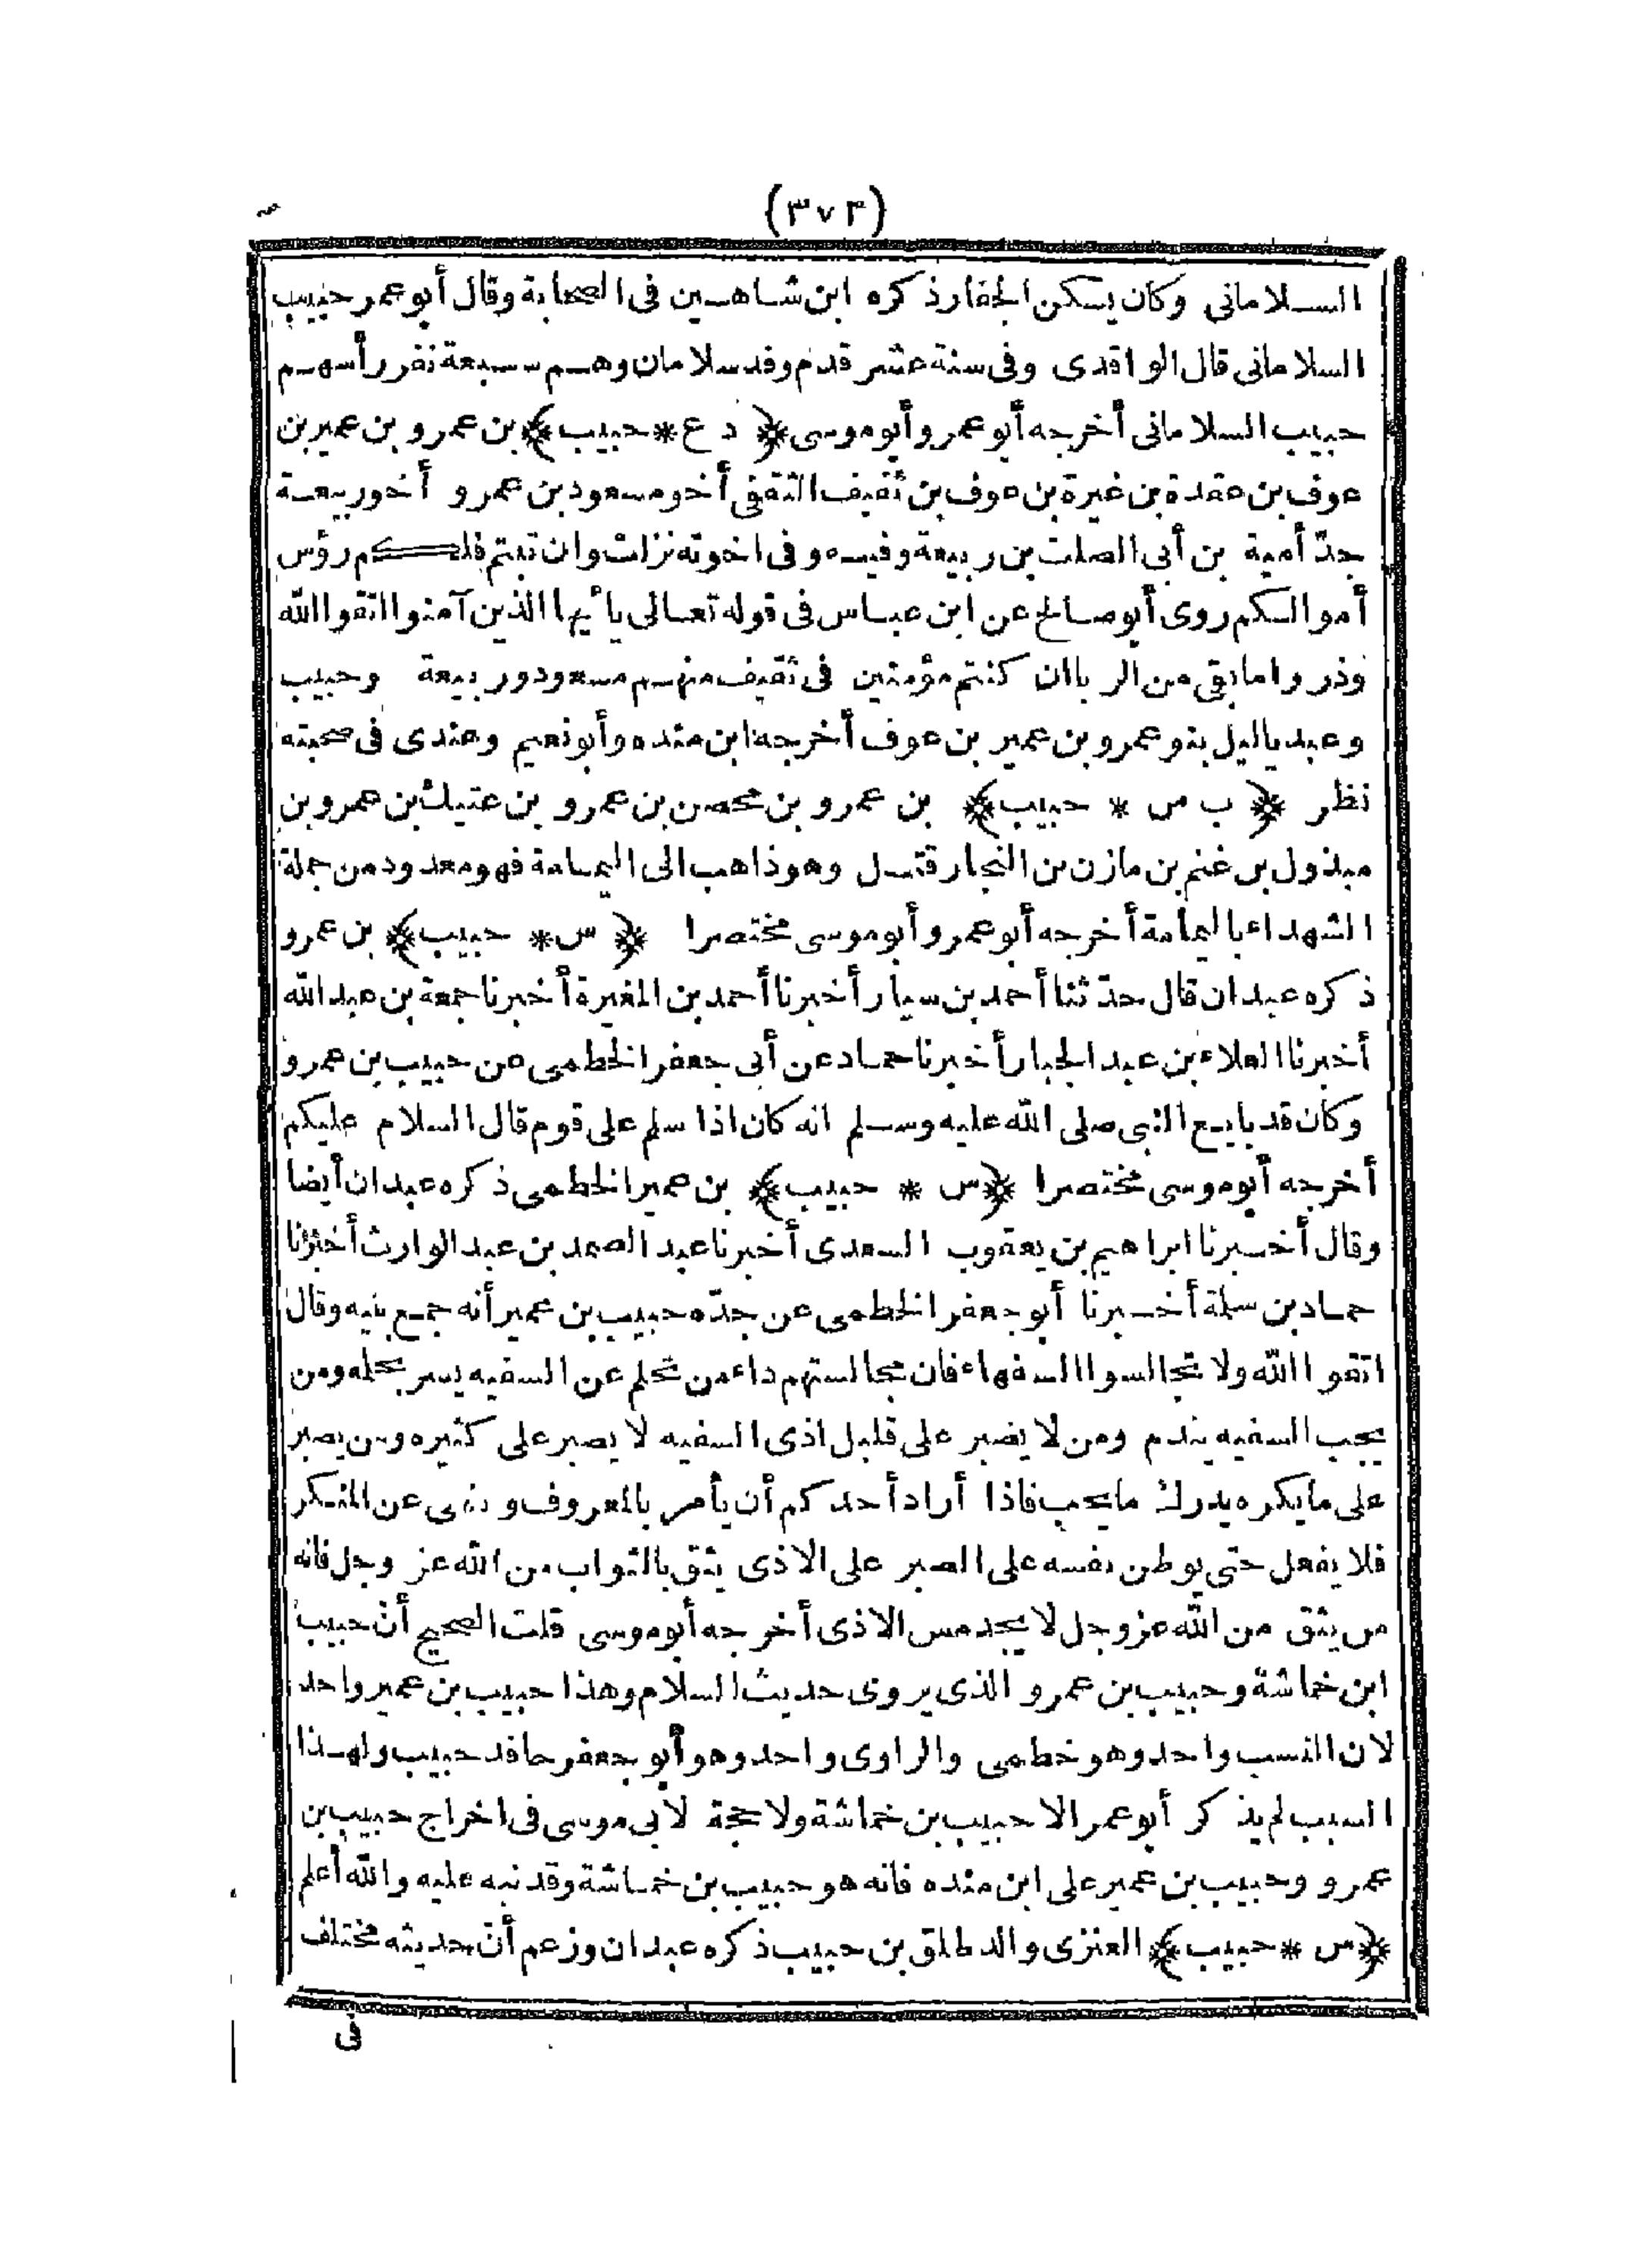 (٣٧٢)
السلاماني وكان يسكن الجفار ذكره ابن شاهين فى الصحابة وقال أبو عمر حبيب
السلامانى قال الواقدى وفى سنة عشر قدم وفد سلامان وهم سبعة نفر رأسهم
حبيب السلامانى أخرجه أبو عمر وأبو موسى ﴿د ع * حبيب﴾ بن عمرو بن عمير بن
عوف بن عقدة بن غيرة بن عوف بن ثقيف الثقفى أخو مسعود بن عمرو أخو ربيعة
جدّ أمية بن أبى الصلت بن ربيعة وفيه وفى اخوته نزلت وان تبتم فلكم رؤس
أموالكم روى أبو صالح عن ابن عباس فى قوله تعالى يا أيها الذين آمنوا اتقوا الله
وذروا ما بقى من الربا ان كنتم مؤمنين فى ثقيف منهم مسعود وربيعة وحبيب
وعبد ياليل بنو عمرو بن عمير بن عوف أخرجه ابن منده وأبو نعيم وعندى فى صحبته
نظر ﴿ب س * حبيب﴾ بن عمرو بن محصن بن عمرو بن عتيك بن عمرو بن
مبذول بن غنم بن مازن بن النجار قتل وهو ذاهب الى اليمامة فهو معدود من جملة
الشهداء باليمامة أخرجه أبو عمر وأبو موسى مختصرا ﴿س * حبيب﴾ بن عمرو
ذكره عبدان قال حدّثنا أحمد بن سيار أخبرنا أحمد بن المغيرة أخبرنا جمعة بن عبد الله
أخبرنا العلاء بن عبد الجبار أخبرنا حماد عن أبى جعفر الخطمى عن حبيب بن عمرو
وكان قد بايع النبى صلى الله عليه وسلم انه كان اذا سلم على قوم قال السلام عليكم
أخرجه أبو موسى مختصرا ﴿س * حبيب﴾ بن عمير الخطمى ذكره عبدان أيضا
وقال أخبرنا ابراهيم بن يعقوب السعدى أخبرنا عبد الصمد بن عبد الوارث أخبرنا
حماد بن سلمة أخبرنا أبو جعفر الخطمى عن جدّه حبيب بن عمير أنه جمع بنيه وقال
اتقوا الله ولا تجالسوا السفهاء فان مجالستهم داء من تحلم عن السفيه يسر بحلمه ومن
يجب السفيه يندم ومن لا يصبر على قليل اذى السفيه لا يصبر على كثيره ومن يصبر
على ما يكره يدرك ما يحب فاذا أراد أحدكم أن يأمر بالمعروف وينهى عن المنكر
فلا يفعل حتى يوطن نفسه على الصبر على الاذى يثق بالثواب من الله عز وجل فانه
من يثق من الله عز وجل لا يجد مس الاذى أخرجه أبو موسى قلت الصحيح أنّ حبيب
ابن خماشة وحبيب بن عمرو الذى يروى حديث السلام وهذا حبيب بن عمير واحد
لان النسب واحد وهو خطمى والراوى واحد وهو أبو جعفر حافد حبيب ولهذا
السبب لم يذكر أبو عمر الا حبيب بن خماشة ولا حجة لابى موسى فى اخراج حبيب بن
عمرو وحبيب بن عمير على ابن منده فانه هو حبيب بن خماشة وقد نبه عليه والله أعلم
﴿س * حبيب﴾ العنزى والد طلق بن حبيب ذكره عبدان وزعم أنّ حديثه مختلف
فى